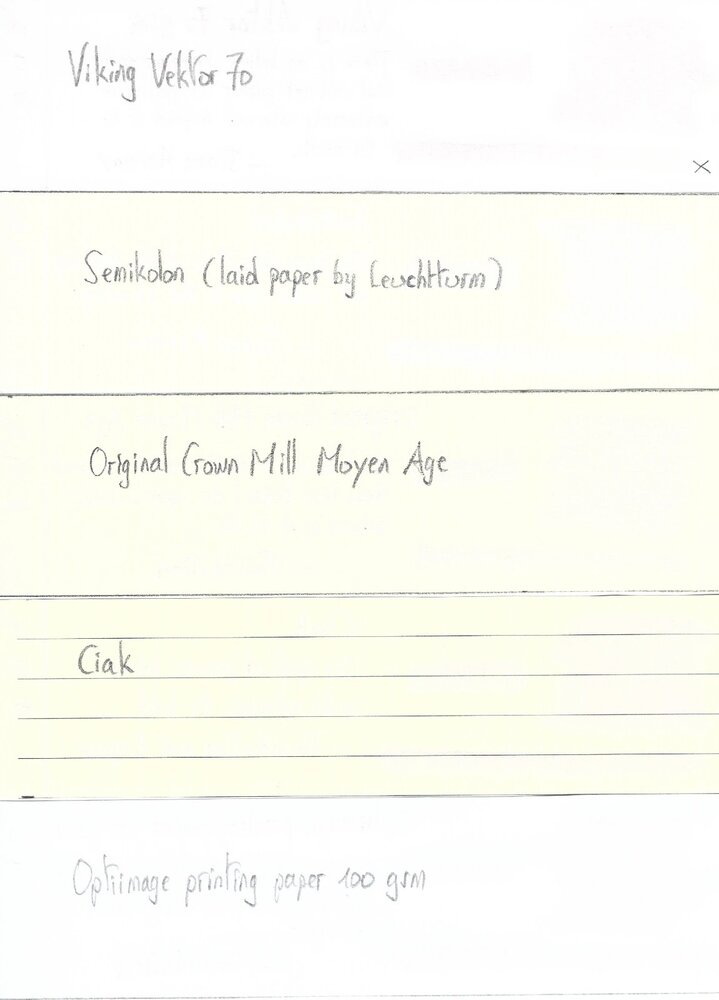 Viking Vektor 70
X
Semikolon (laid paper by Leuchtturm)
Original Crown Mill Moyen Age
Ciak
Optiimage printing paper 100 gsm